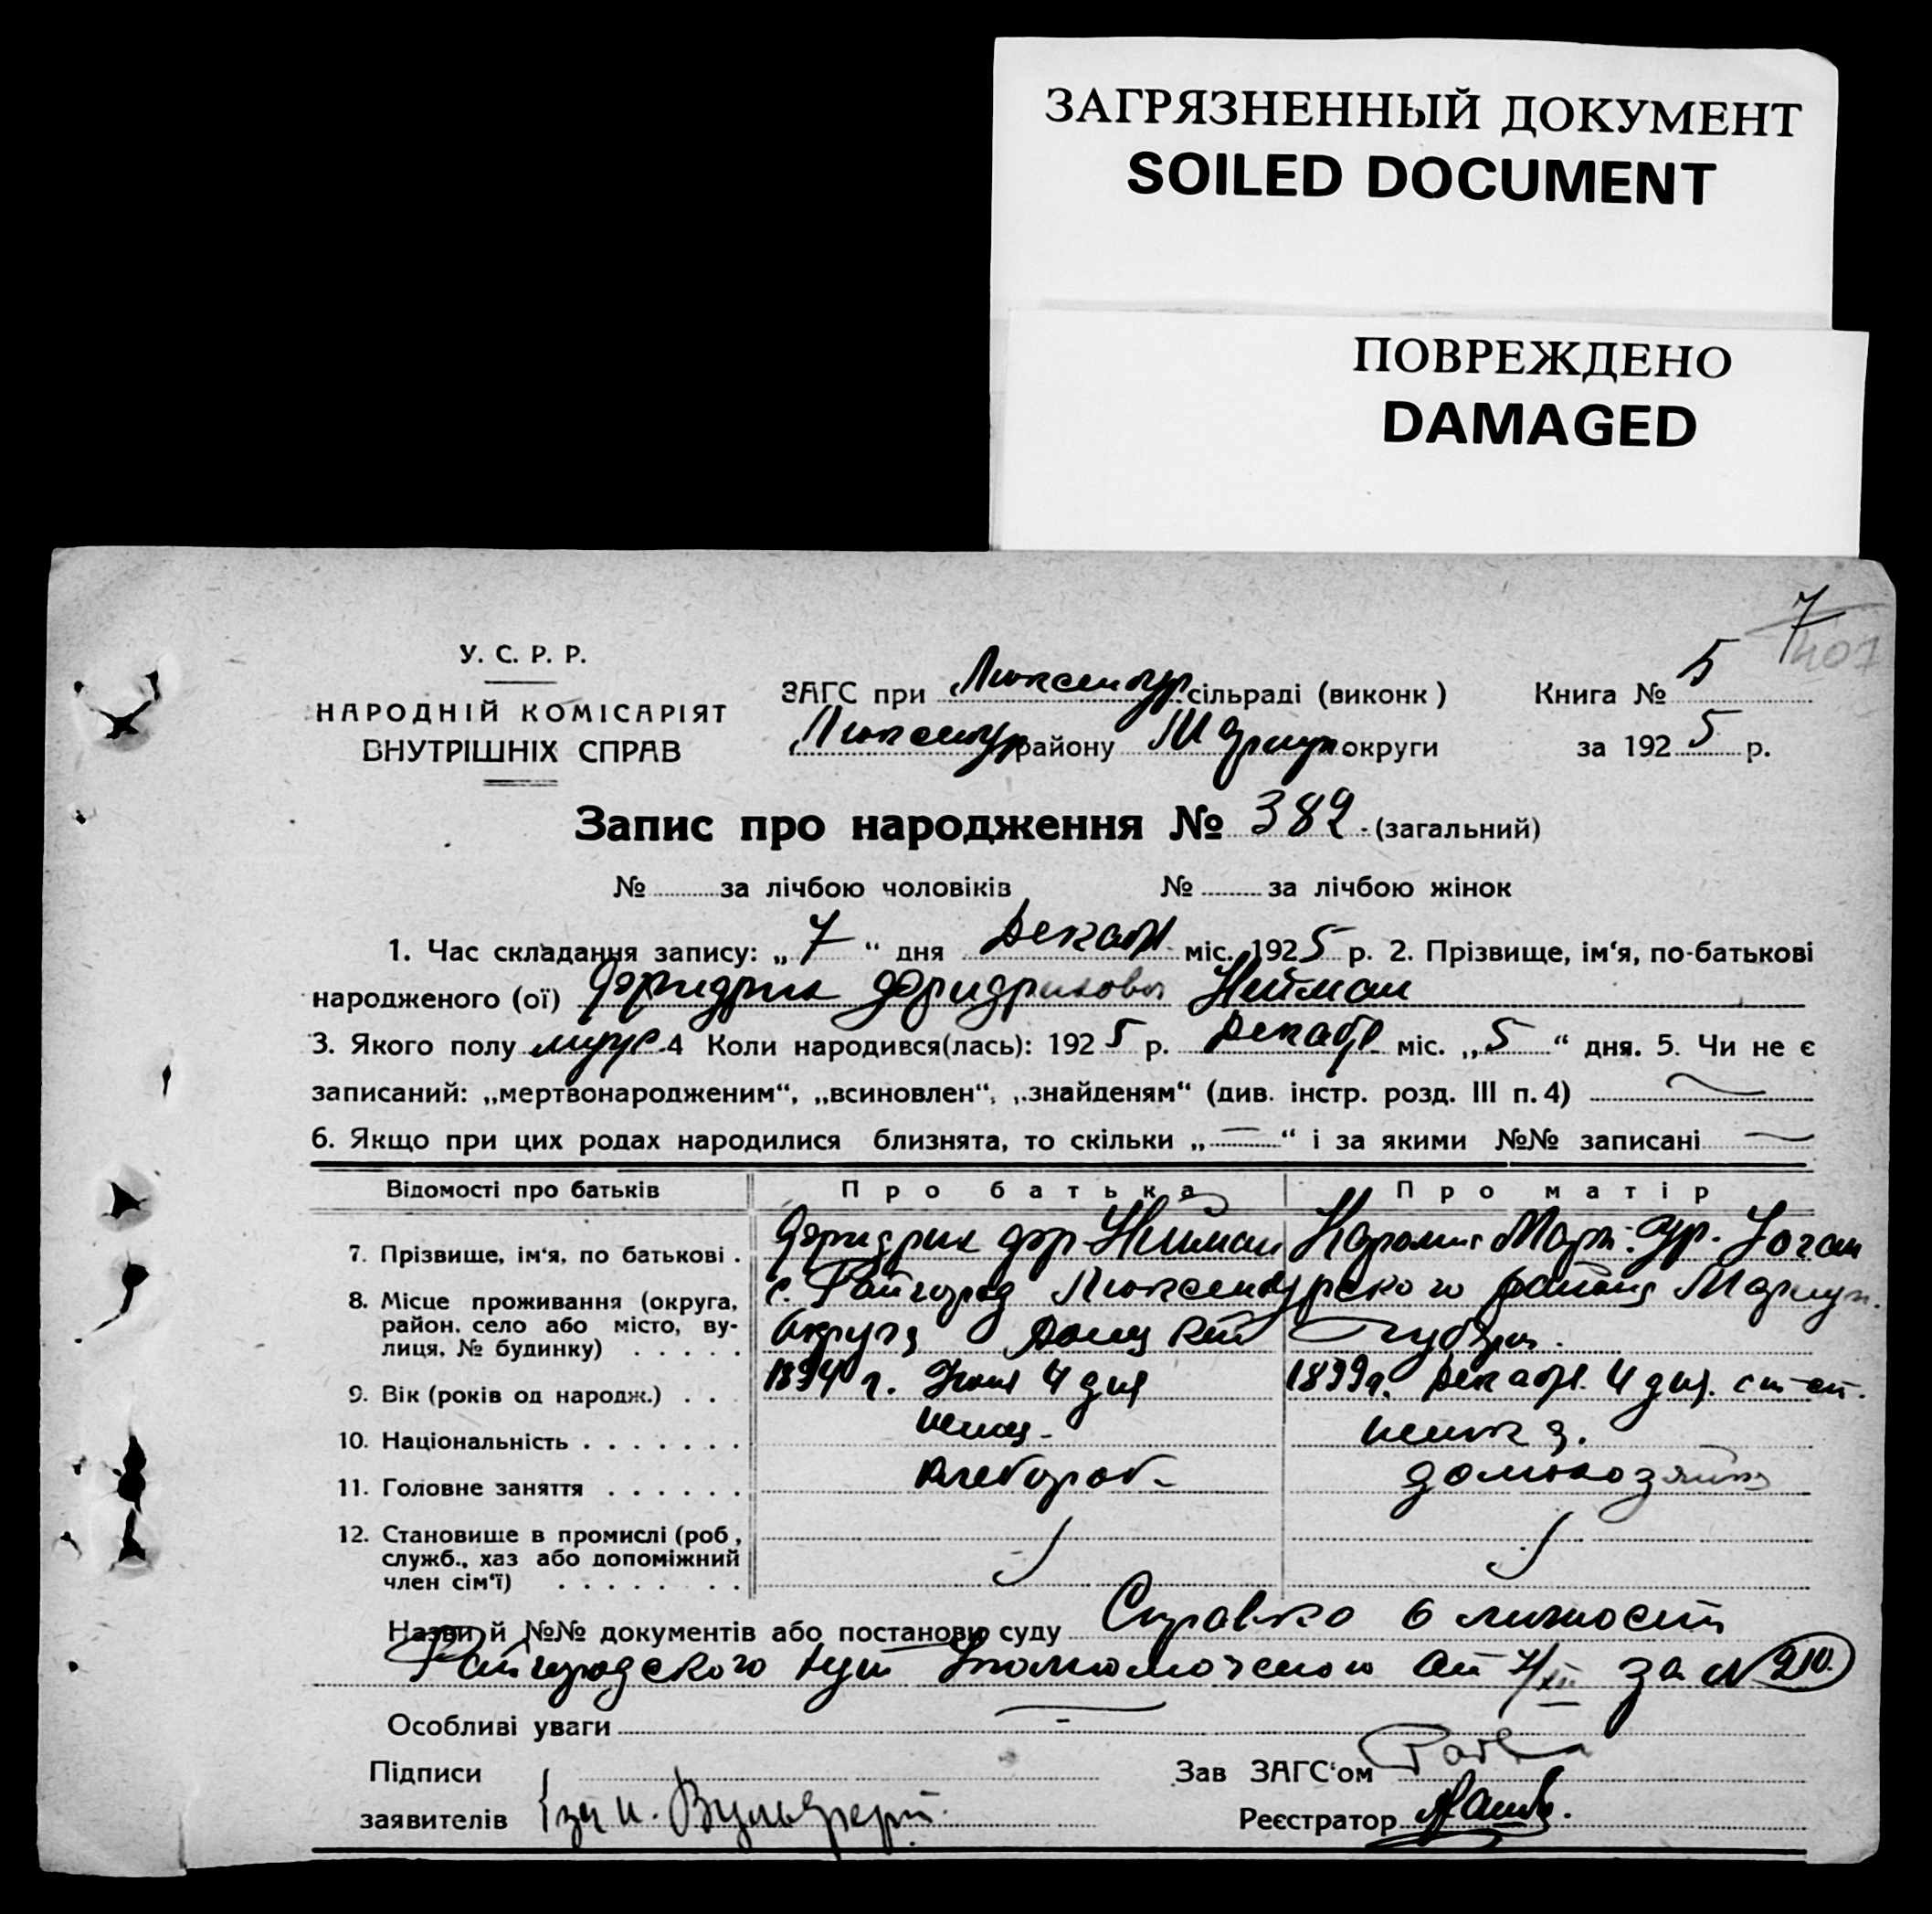 ЗАГРЯЗНЕННЫЙ ДОКУМЕНТ
SOILED DOCUMENT
ПОВРЕЖДЕНО
DAMAGED
7
407
У. С. Р. Р.
НАРОДНІЙ КОМІСАРІЯТ
ВНУТРІШНІХ СПРАВ
ЗАГС при Люксембур сільраді (виконк) Книга № 5
Люксембур району Мариуп округи за 1925 р.
Запис про народження № 389 (загальний)
№ за лічбою чоловіків № за лічбою жінок
1. Час складання запису: „7“ дня Декабр міс. 1925 р. 2. Прізвище, ім‘я, по-батькові
народженого (ої) Фридрих Фридрихович Нейман
3. Якого полу муж. 4 Коли народився(лась): 1925 р. Декабр. міс. „5“ дня. 5. Чи не є
записаний: „мертвонародженим“, „всиновлен“, „знайденям“ (див. інстр. розд. III п. 4)
6. Якщо при цих родах народилися близнята, то скільки „—“ і за якими №№ записані —
Відомості про батьків Про батька Про матір
7. Прізвище, ім‘я, по батькові . Фридрих Фр. Нейман
8. Місце проживання (округа, район, село або місто, вулиця, № будинку) с. Райгород Люксембургского района Мариуп.
округа Донецкой губерн.
9. Вік (років од народж.) . . 1894 г. 4 дня 1899 г. Декабр. 4 дня. ст. ст.
10. Національність . . . . . . . немец. немка.
11. Головне заняття . . . . . . хлебороб. домохозяйка
12. Становище в промислі (роб, служб., хаз або допоміжний член сім‘ї) . . . . . . . .
Назви й №№ документів або постанову суду Справка о личности
Райгородского Уполномоченого от 7/XII за № 210.
Особливі уваги
Підписи Зав ЗАГС‘ом
заявителів Реєстратор